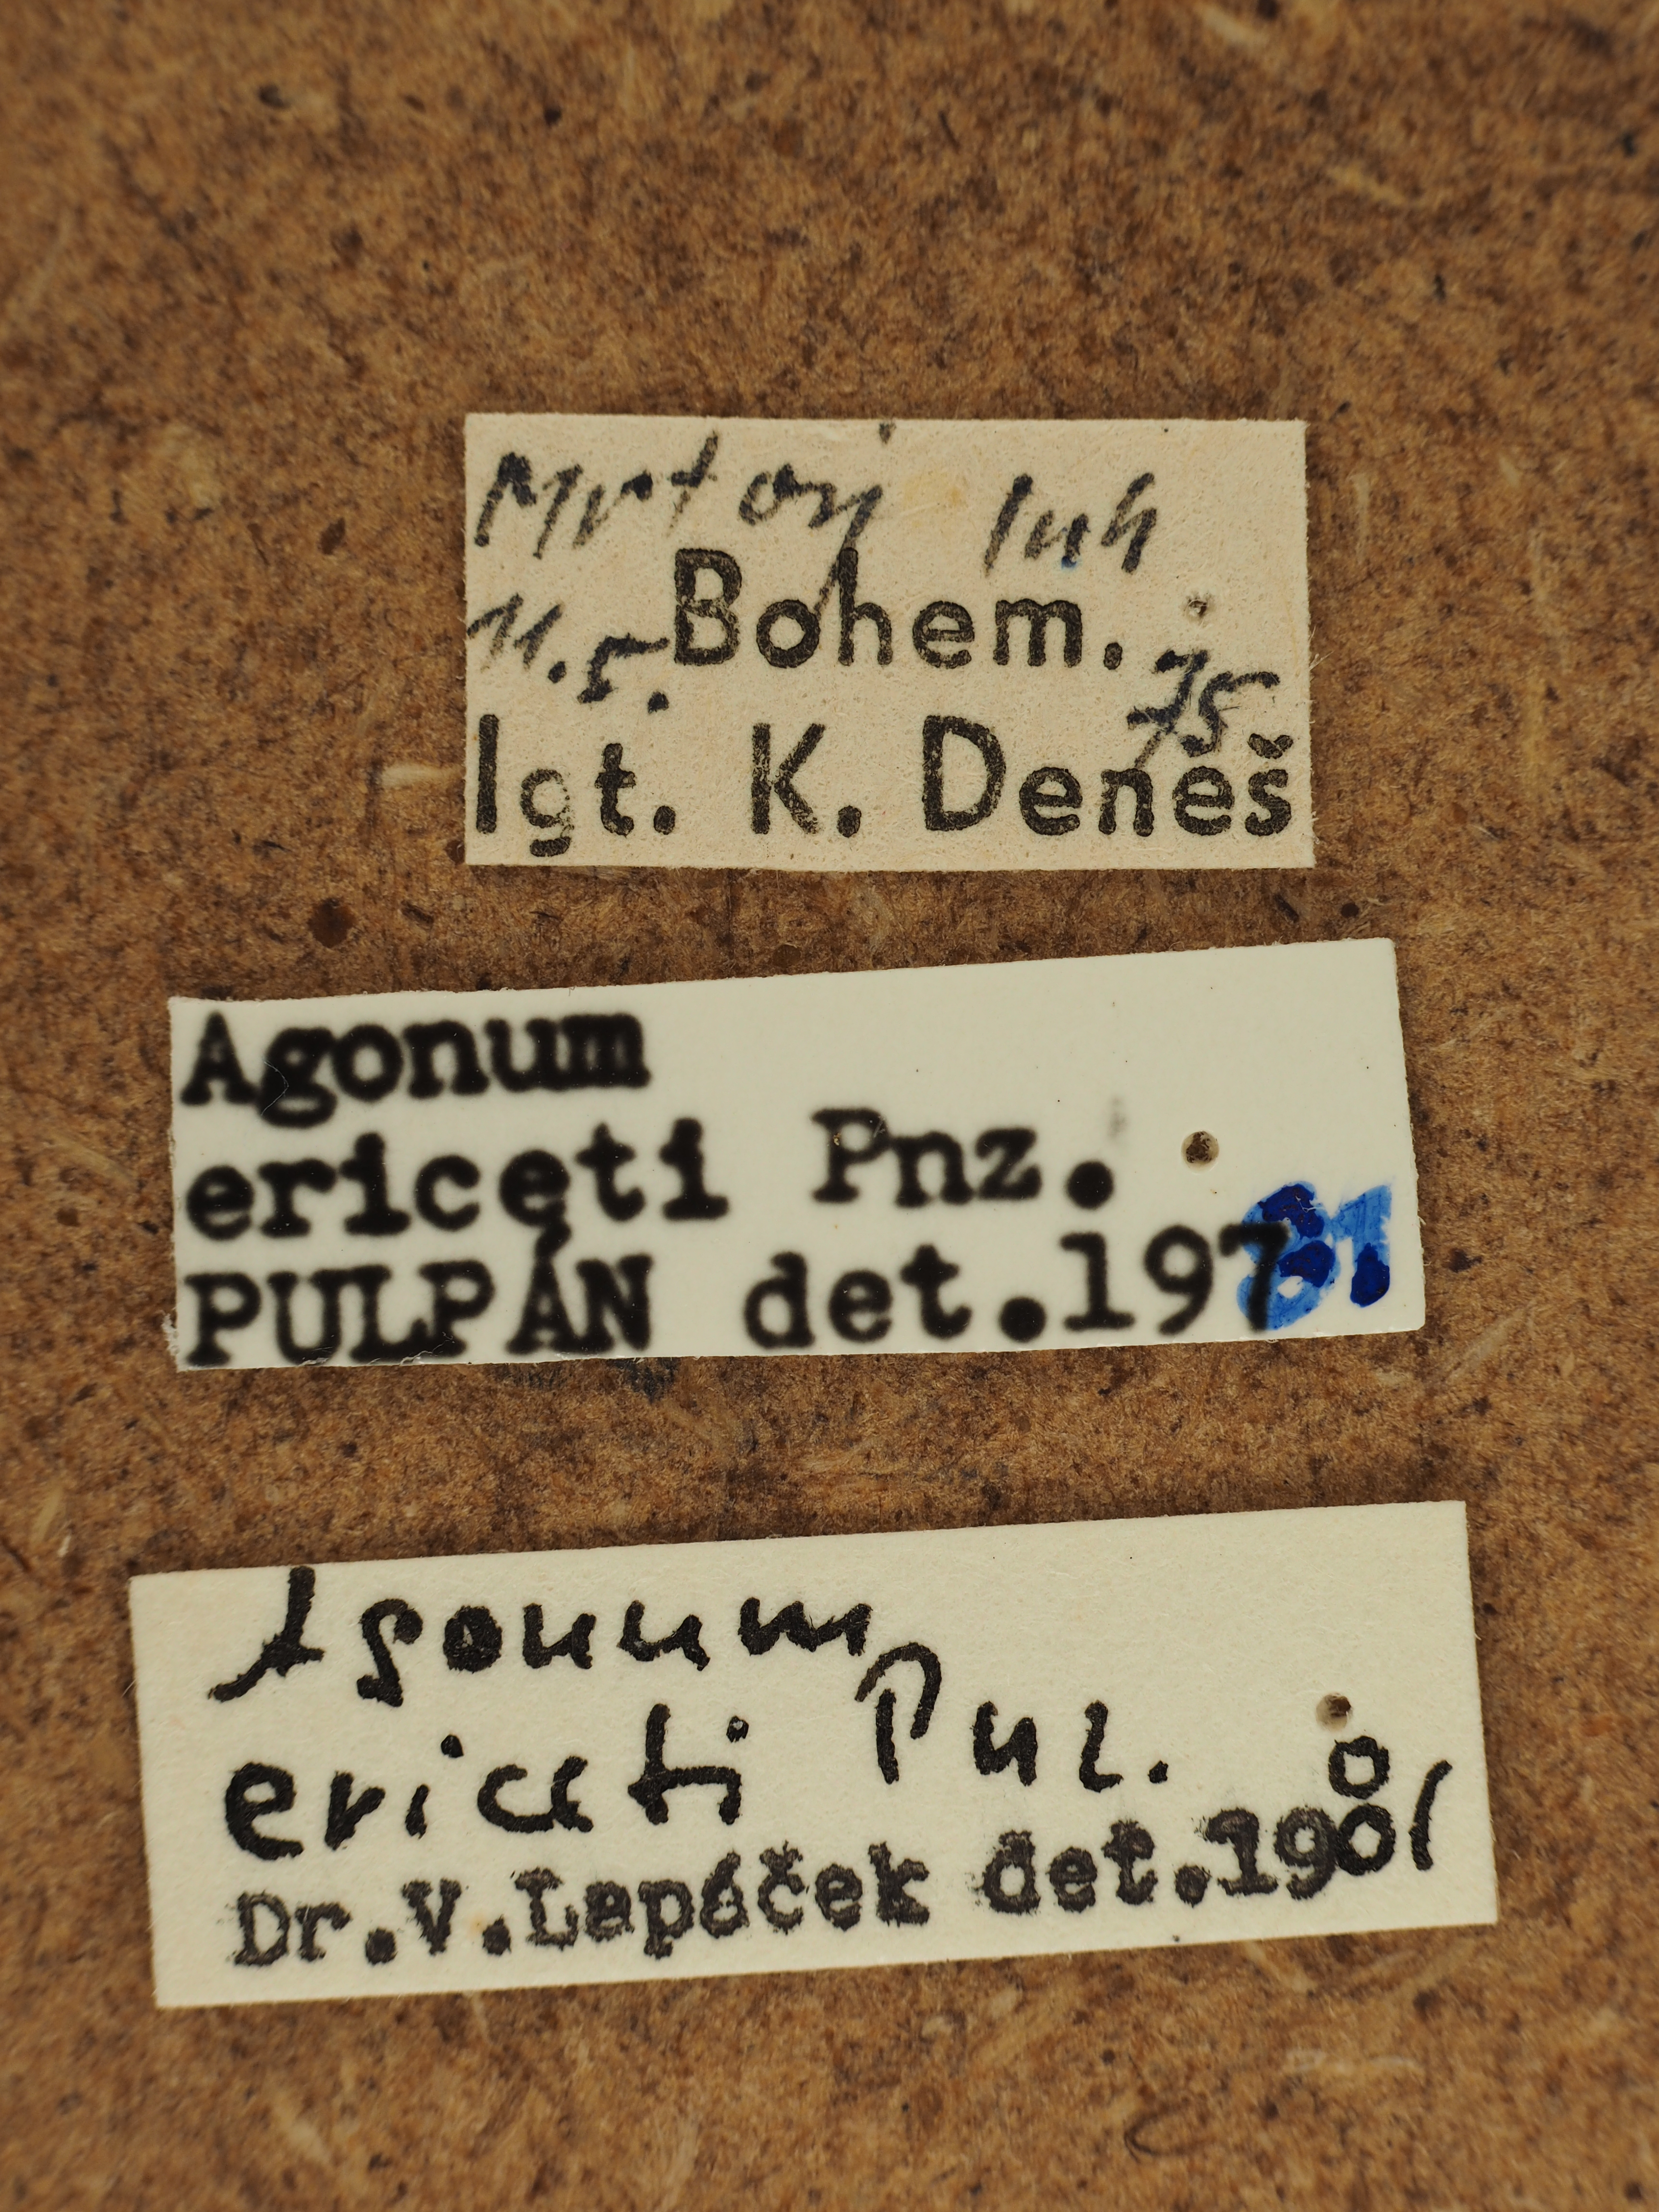 Mrtvý luh
11.5. Bohem. 75
lgt. K. Deneš
Agonum
ericeti Pnz.
PULPÁN det.1981
Agonum
ericeti Pnz.
Dr.V.Lapáček det.1981